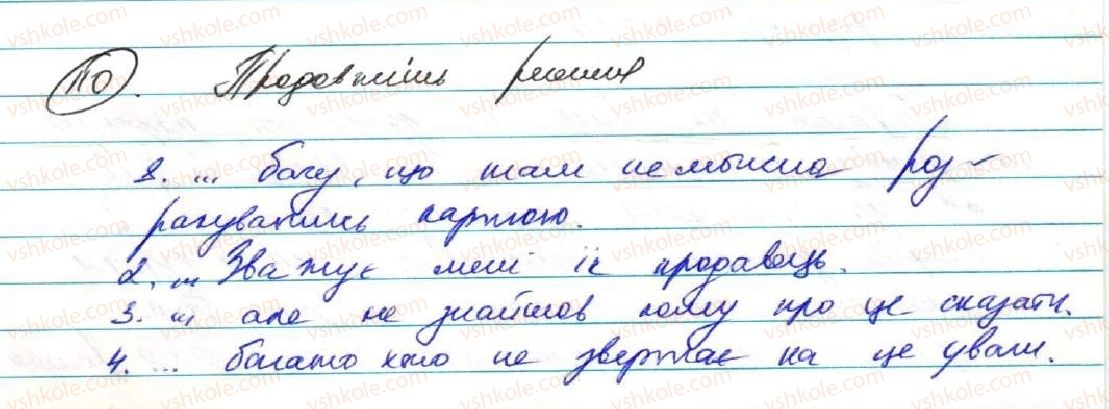 ПО. Продовжіть речення
1. ... бачу, що там не можна роз-
рахуватись карткою.
2. ... Зважує мені їх продавець.
3. ... але не знайшов кому про це сказати.
4. ... багато хто не звертає на це уваги.